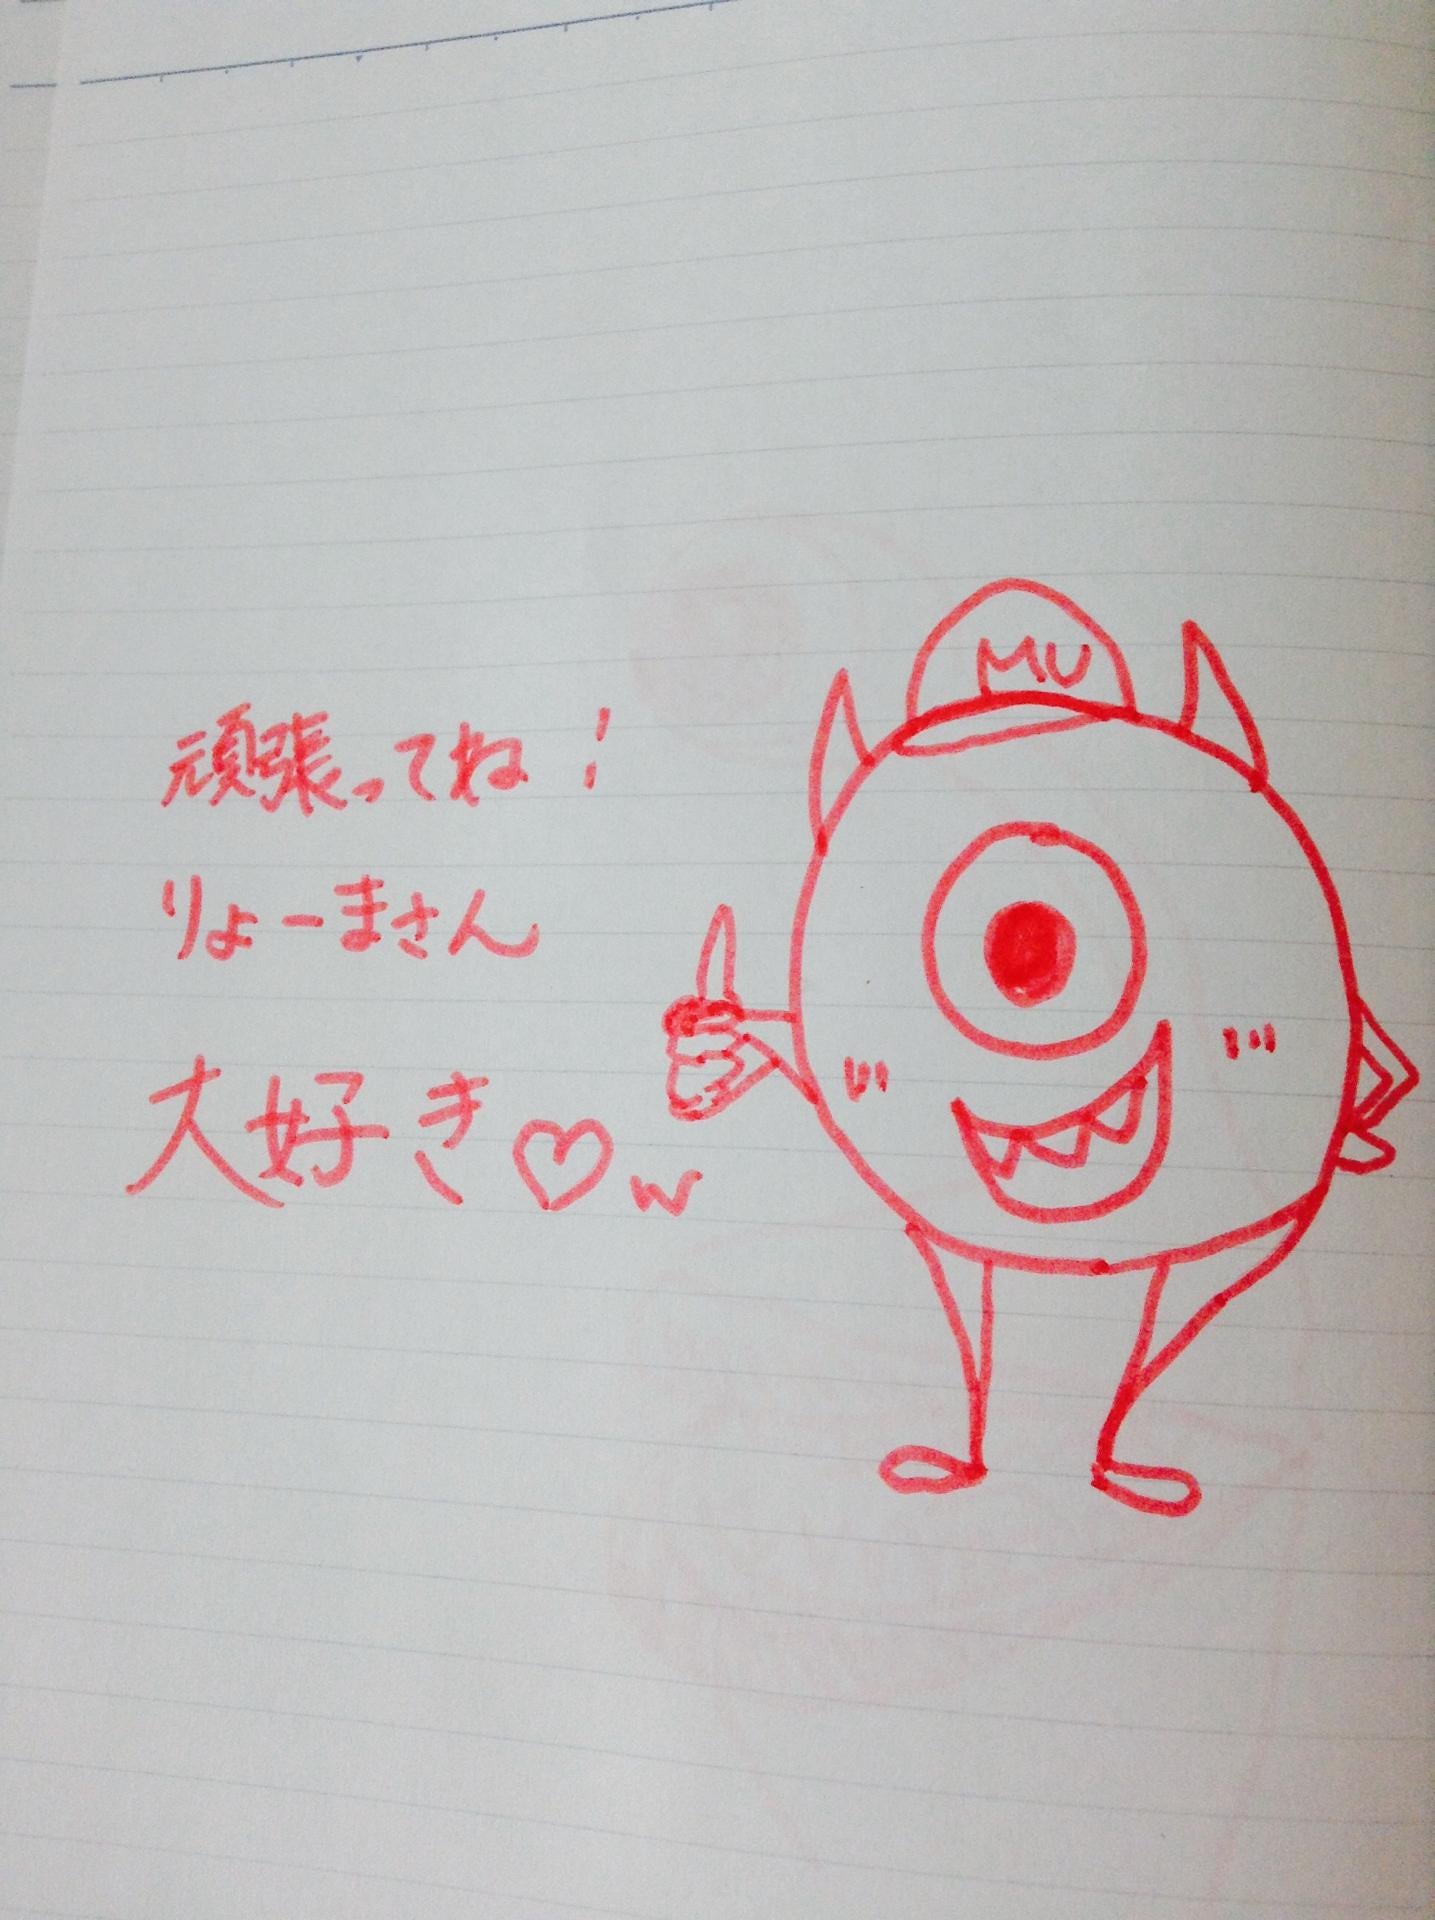 頑張ってね！
りょーまさん
大好き♡w
MU